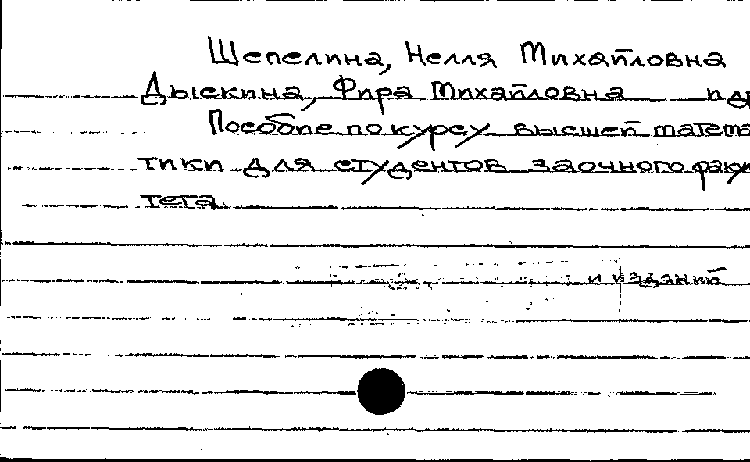 Шепелина, Нелля Михайловна
Дыскина, Фира Михайловна и др
Пособие по курсу высшей матема
тики для студентов заочного факу
тета
и изданий